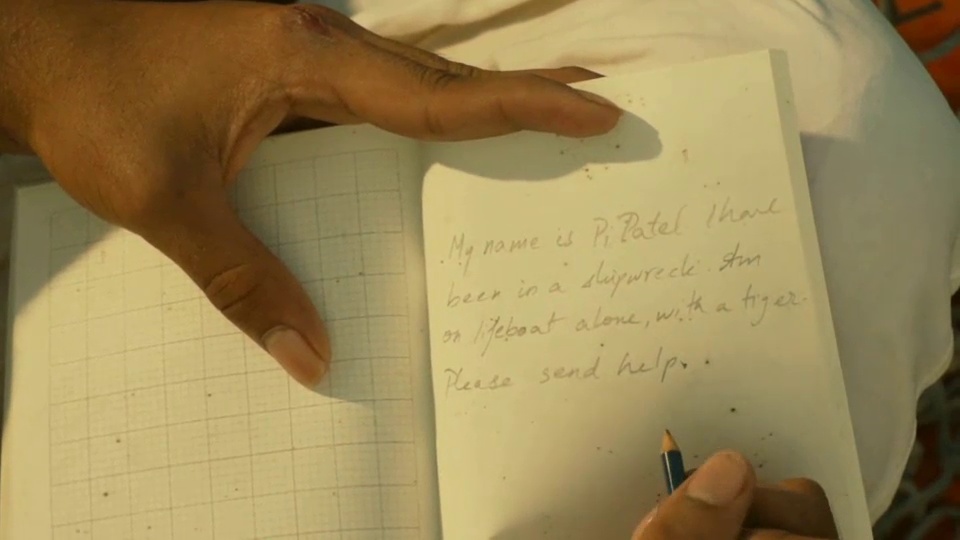 My name is Pi Patel I have
been in a shipwreck. Am
on lifeboat alone, with a tiger.
Please send help.